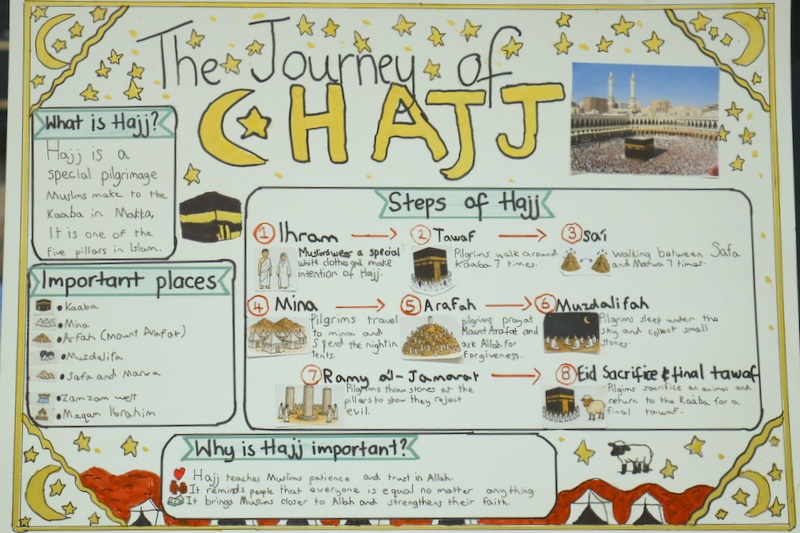 The Journey of
HAJJ
What is Hajj?
Hajj is a
special pilgrimage
Muslims make to the
Kaaba in Makka,
It is one of the
five pillars in Islam.
Important places
• Kaaba
• Mina
• Arfah (Mount Arafat)
• Muzdalifa
• Safa and Marwa
• Zamzam well
• Maqam Ibrahim
Steps of Hajj
1 Ihram
Muslims wear a special
white clothes and make
intention of Hajj.
2 Tawaf
Pilgrims walk around
Kaaba 7 times.
3 Sa'i
Walking between Safa
and Marwa 7 times.
4 Mina
Pilgrims travel
to mina and
spend the night in
tents.
5 Arafah
pilgrims pray at
Mount Arafat and
ask Allah for
forgiveness.
6 Muzdalifah
Pilgrims sleep under the
sky and collect small
stones.
7 Ramy al-Jamarat
Pilgrims throw stones at the
pillars to show they reject
evil.
8 Eid Sacrifice & final tawaf
Pilgims sacrifice an animal and
return to the Kaaba for a
final tawaf.
Why is Hajj important?
Hajj teaches Muslims patience and trust in Allah.
It reminds people that everyone is equal no matter anything.
It brings Muslims closer to Allah and strengthens their faith.